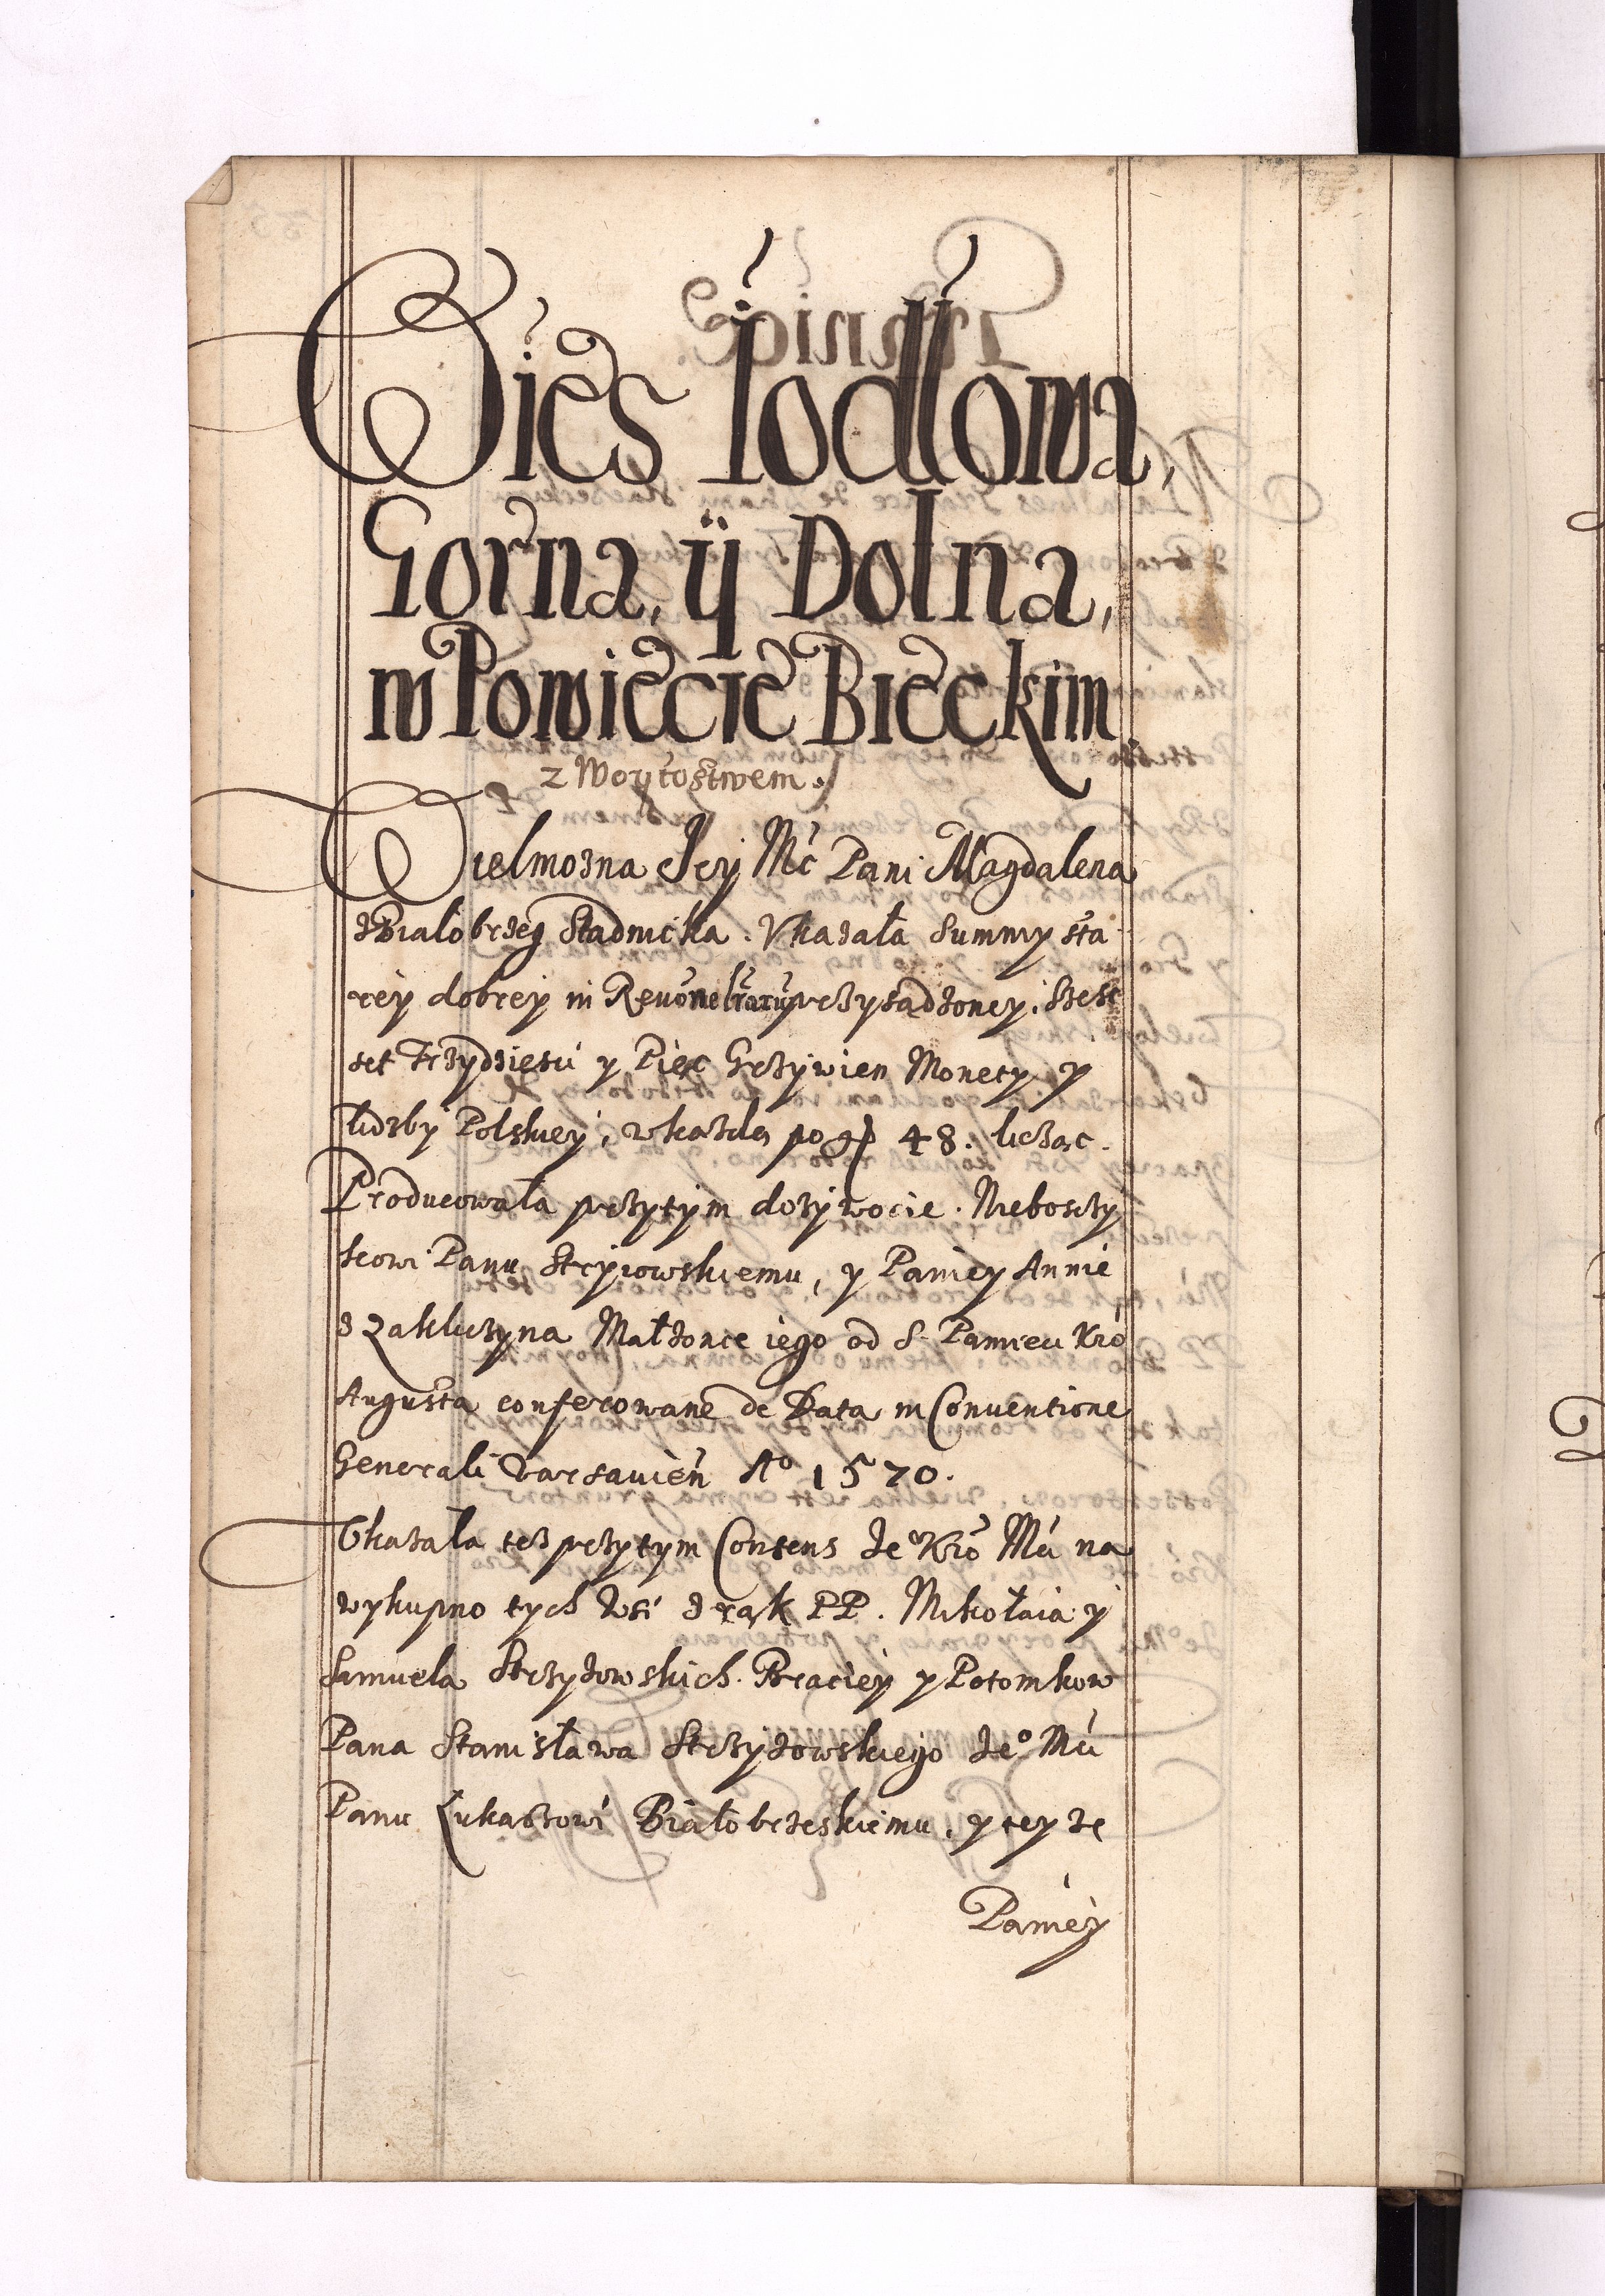 Wies Iodłowa,
Gorna, ÿ Dolna,
w Powiecie Bieckim
z Woytostwem.
Wielmozna Jey Mć Pani Magdalena
z Białobrzeg Stadnicka. Vkazała Summy sta
rey dobrey in przysadzoney. Szesc
set trzydziesci y Pięc Grzywien Monety y
liczby Polskiey, w kazdą po gr 48. licząc.
Producowała przytym dozywocie. Nieboszczy
kowi Panu Strzyzowskiemu, y Paniey Annie
z Zakliczyna Małzonce iego od S. Pamieci Kró
Augusta conferowane de Data in Conventione
Generali Varsavień Aº 1570.
Vkazała tez przytym Consens Jeº Kró Mći na
wykupno tych Wsi z rąk PP. Mikołaia y
Samuela Strzyzowskich. Braciey y Potomkow
Pana Stanisława Strzyzowskiego Jeº Mći
Panu Łukaszowi Białobrzeskiemu, y teyze
Paniey